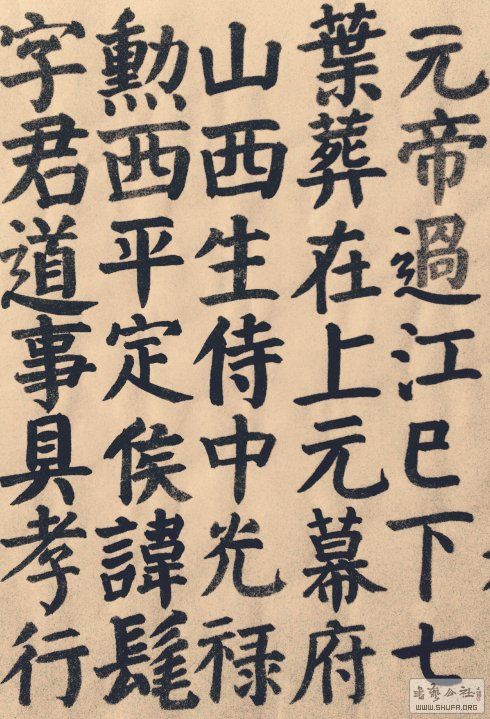 元帝過江巳下七
葉葬在上元幕府
山西生侍中光禄
勳西平定侯諱髦
字君道事具孝行
書藝公社
WWW.SHUFA.ORG